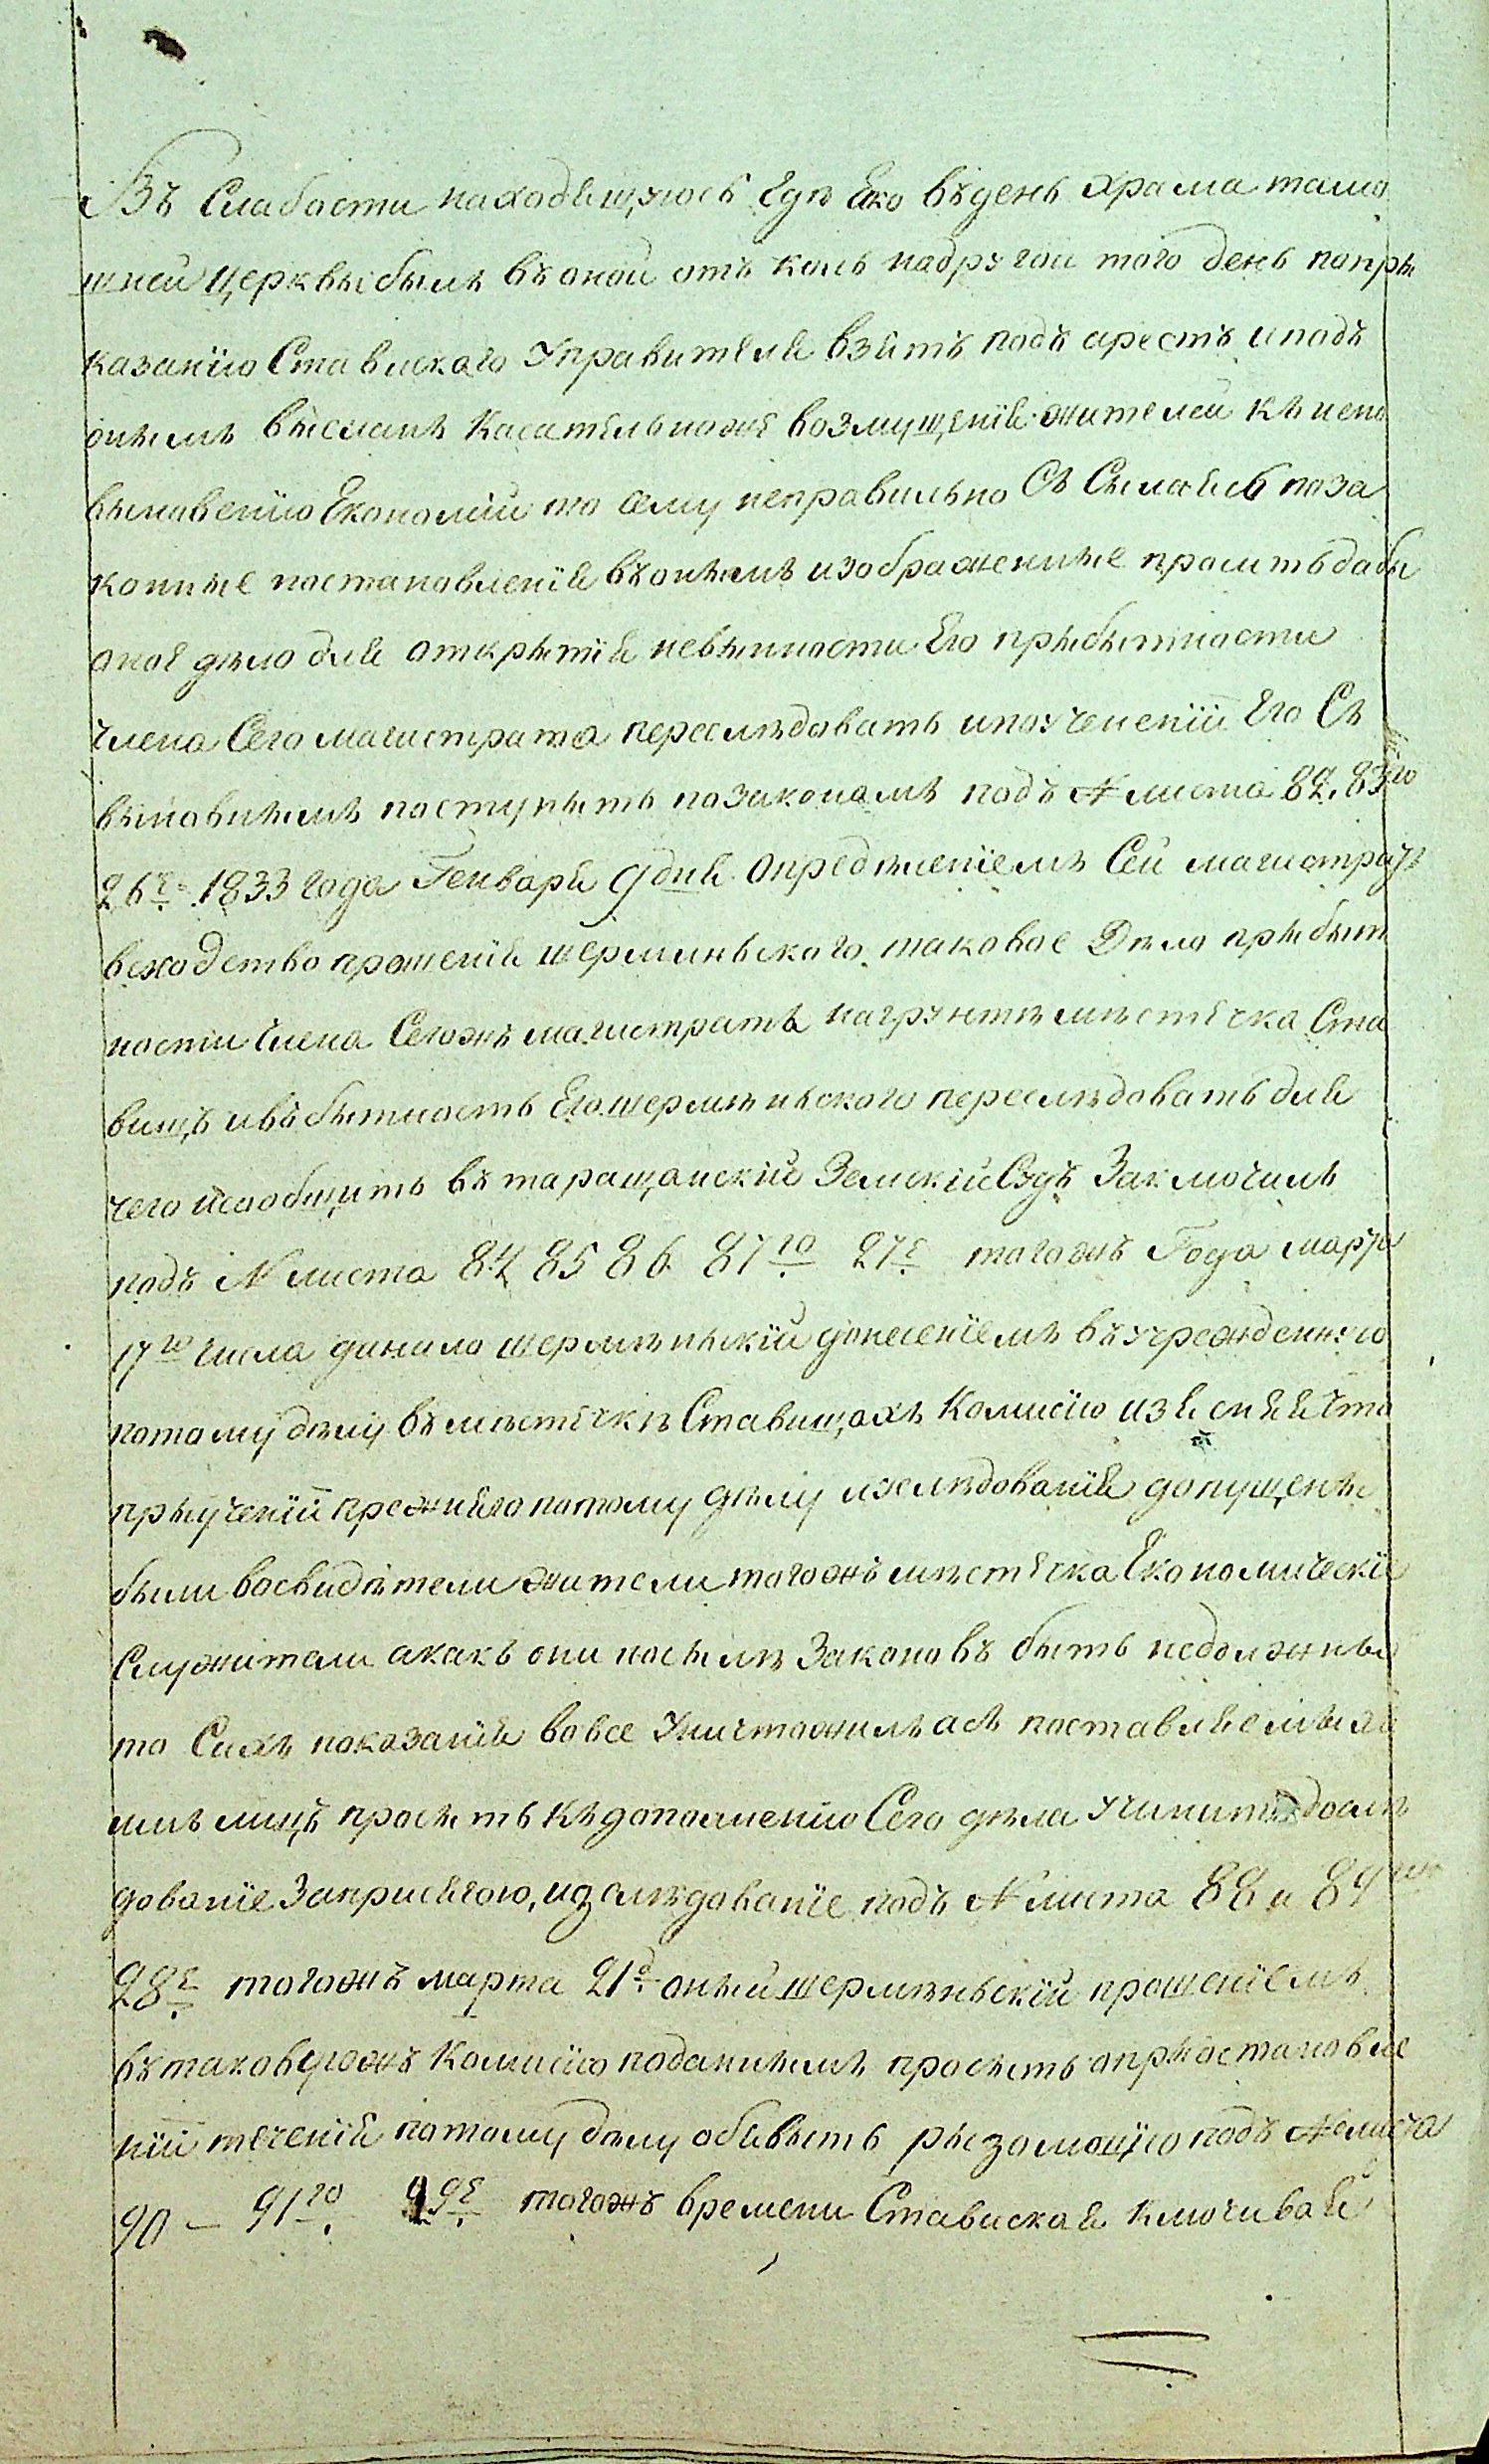 Въ Слабости находящуюсѣ Едѣ Яко въдень Храма тамо
шней Церквы былъ въоной отъ коль надругой того день попры
казанію Ставиского Управителя взятъ подъ арестъ иподъ
онымъ высланъ Касательноже возмущенія жителей къ непо
выновенію Економіи то сему неправильно Съ Сылаясь поза
конные постановленія въонымъ изображенные просить дабы
оное дѣло для открытія невынности Его прыбытности
члена Сего магистрата переслѣдовать ипоученіи Его Съ
выновнымъ поступыть позаконамъ подъ № листа 82. 83го
26е. 1833 года Генваря 9 дня опредѣленіемъ Сей магистратъ
всходство прошенія шермѣньского таковое Дѣло прыбыт
ности Члена Сегожъ магистрата нагрунтѣ мѣстечка Ста
вищъ ивъ бытность Его шермѣньского переслѣдовать для
чего исообщить въ таращанскій Земскій Судъ Заключилъ
подъ № листа 84 85 86. 87го 27е тогожъ Года марта
17го Числа данило шермѣньскій донесеніемъ въучрежденную
потому дѣлу въмѣстечкѣ Ставищахъ Комисію изъясняя что
прыученіи прежняго потому дѣлу изслѣдованія допущены
были восвидѣтели жители тогожъ мѣстечка Економическіе
Служители акакъ они посылѣ Законовъ быть недолжны
то Сихъ показанія вовсе Уничтожилъ асъ поставляемыхъ
имъ лицъ просыть къдополненію Сего дѣла Учинить дослѣ
дованіе Заприсягою, изслѣдованіе подъ № листа 88 и 89го
28е тогожъ марта 21о оный шермѣньскій прошеніемъ
въ таковуюжъ Комисію поданнымъ просыть опрыостановле
ніи теченія потому дѣлу обявыть рызолюцію подъ № листа
90 – 91го 29е тогожъ времени Ставиская Ключивая